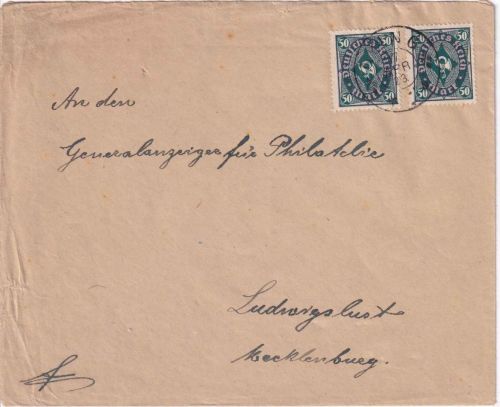 50 50
Deutsches Reich
Mark
50 50
50 50
Deutsches Reich
Mark
50 50
An den
Generalanzeiger für Philatelie
Ludwigslust
Mecklenburg.